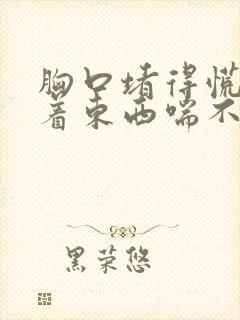 胸口堵得慌
着东西喘不
黑荣悠